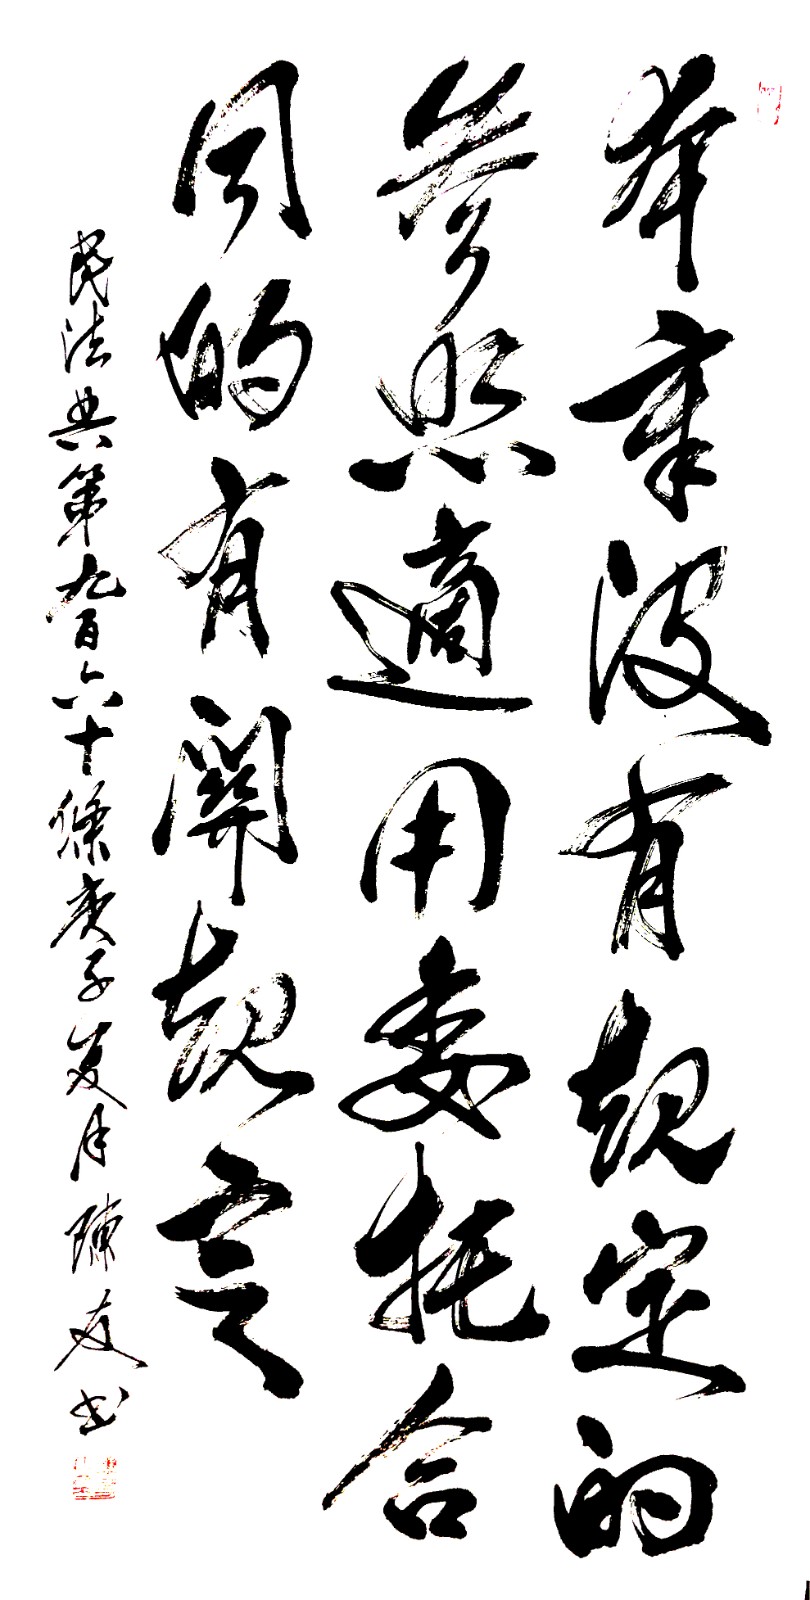 本章没有规定的
参照適用委托合
同的有關规定
民法典第九百六十條庚子夏月陳友书